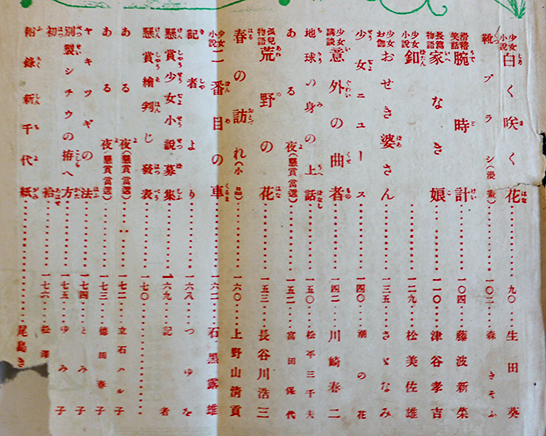 少女小説 白く咲く花 九〇 生田葵
靴ブラシ(漫畫) 一〇二 森きそふ
滑稽笑話 腕時計 一〇四 藤波新栄
長篇物語 家なき娘 一一〇 津谷孝吉
少女小説 釦 一二九 松美佐雄
少女お伽 おせき婆さん 一三五 さとなみ
少女ニュース 一四〇 潮の花
少女講談 意外の曲者 一四二 川崎春二
地球の身の上話 一五〇 松平三千夫
ある夜(懸賞當選) 一五二 富田保代
孤兒物語 荒野の花 一五三 長谷川浩三
春の訪れ(小品) 一六〇 上野山清貢
少女小説 二番目の車 一六二 石黒露雄
記者より 一六八 つゆを
懸賞少女小説募集 一六九 記者
懸賞繪判じ發表 一七〇
ある夜(懸賞當選) 一七二 立石ハル子
ある夜(懸賞當選) 一七三 徳田春子
ヤキツギの法 一七四 とみ子
別製シチウの拵へ方 一七五 ゆみ子
初袷 一七六 松澤
附錄新千代紙 尾島き